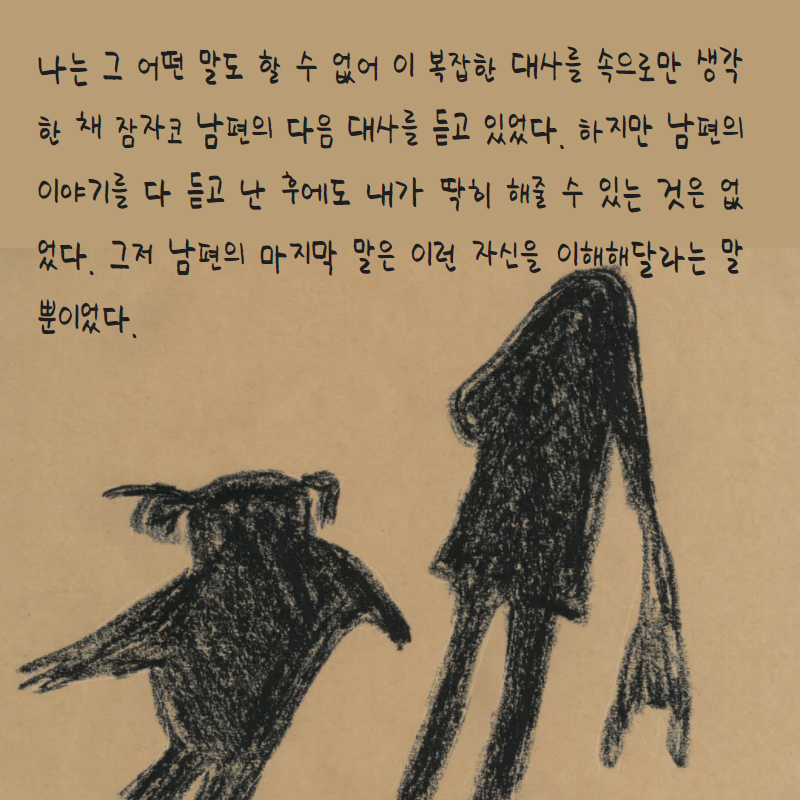 나는 그 어떤 말도 할 수 없어 이 복잡한 대사를 속으로만 생각
한 채 잠자코 남편의 다음 대사를 듣고 있었다. 하지만 남편의
이야기를 다 듣고 난 후에도 내가 딱히 해줄 수 있는 것은 없
었다. 그저 남편의 마지막 말은 이런 자신을 이해해달라는 말
뿐이었다.